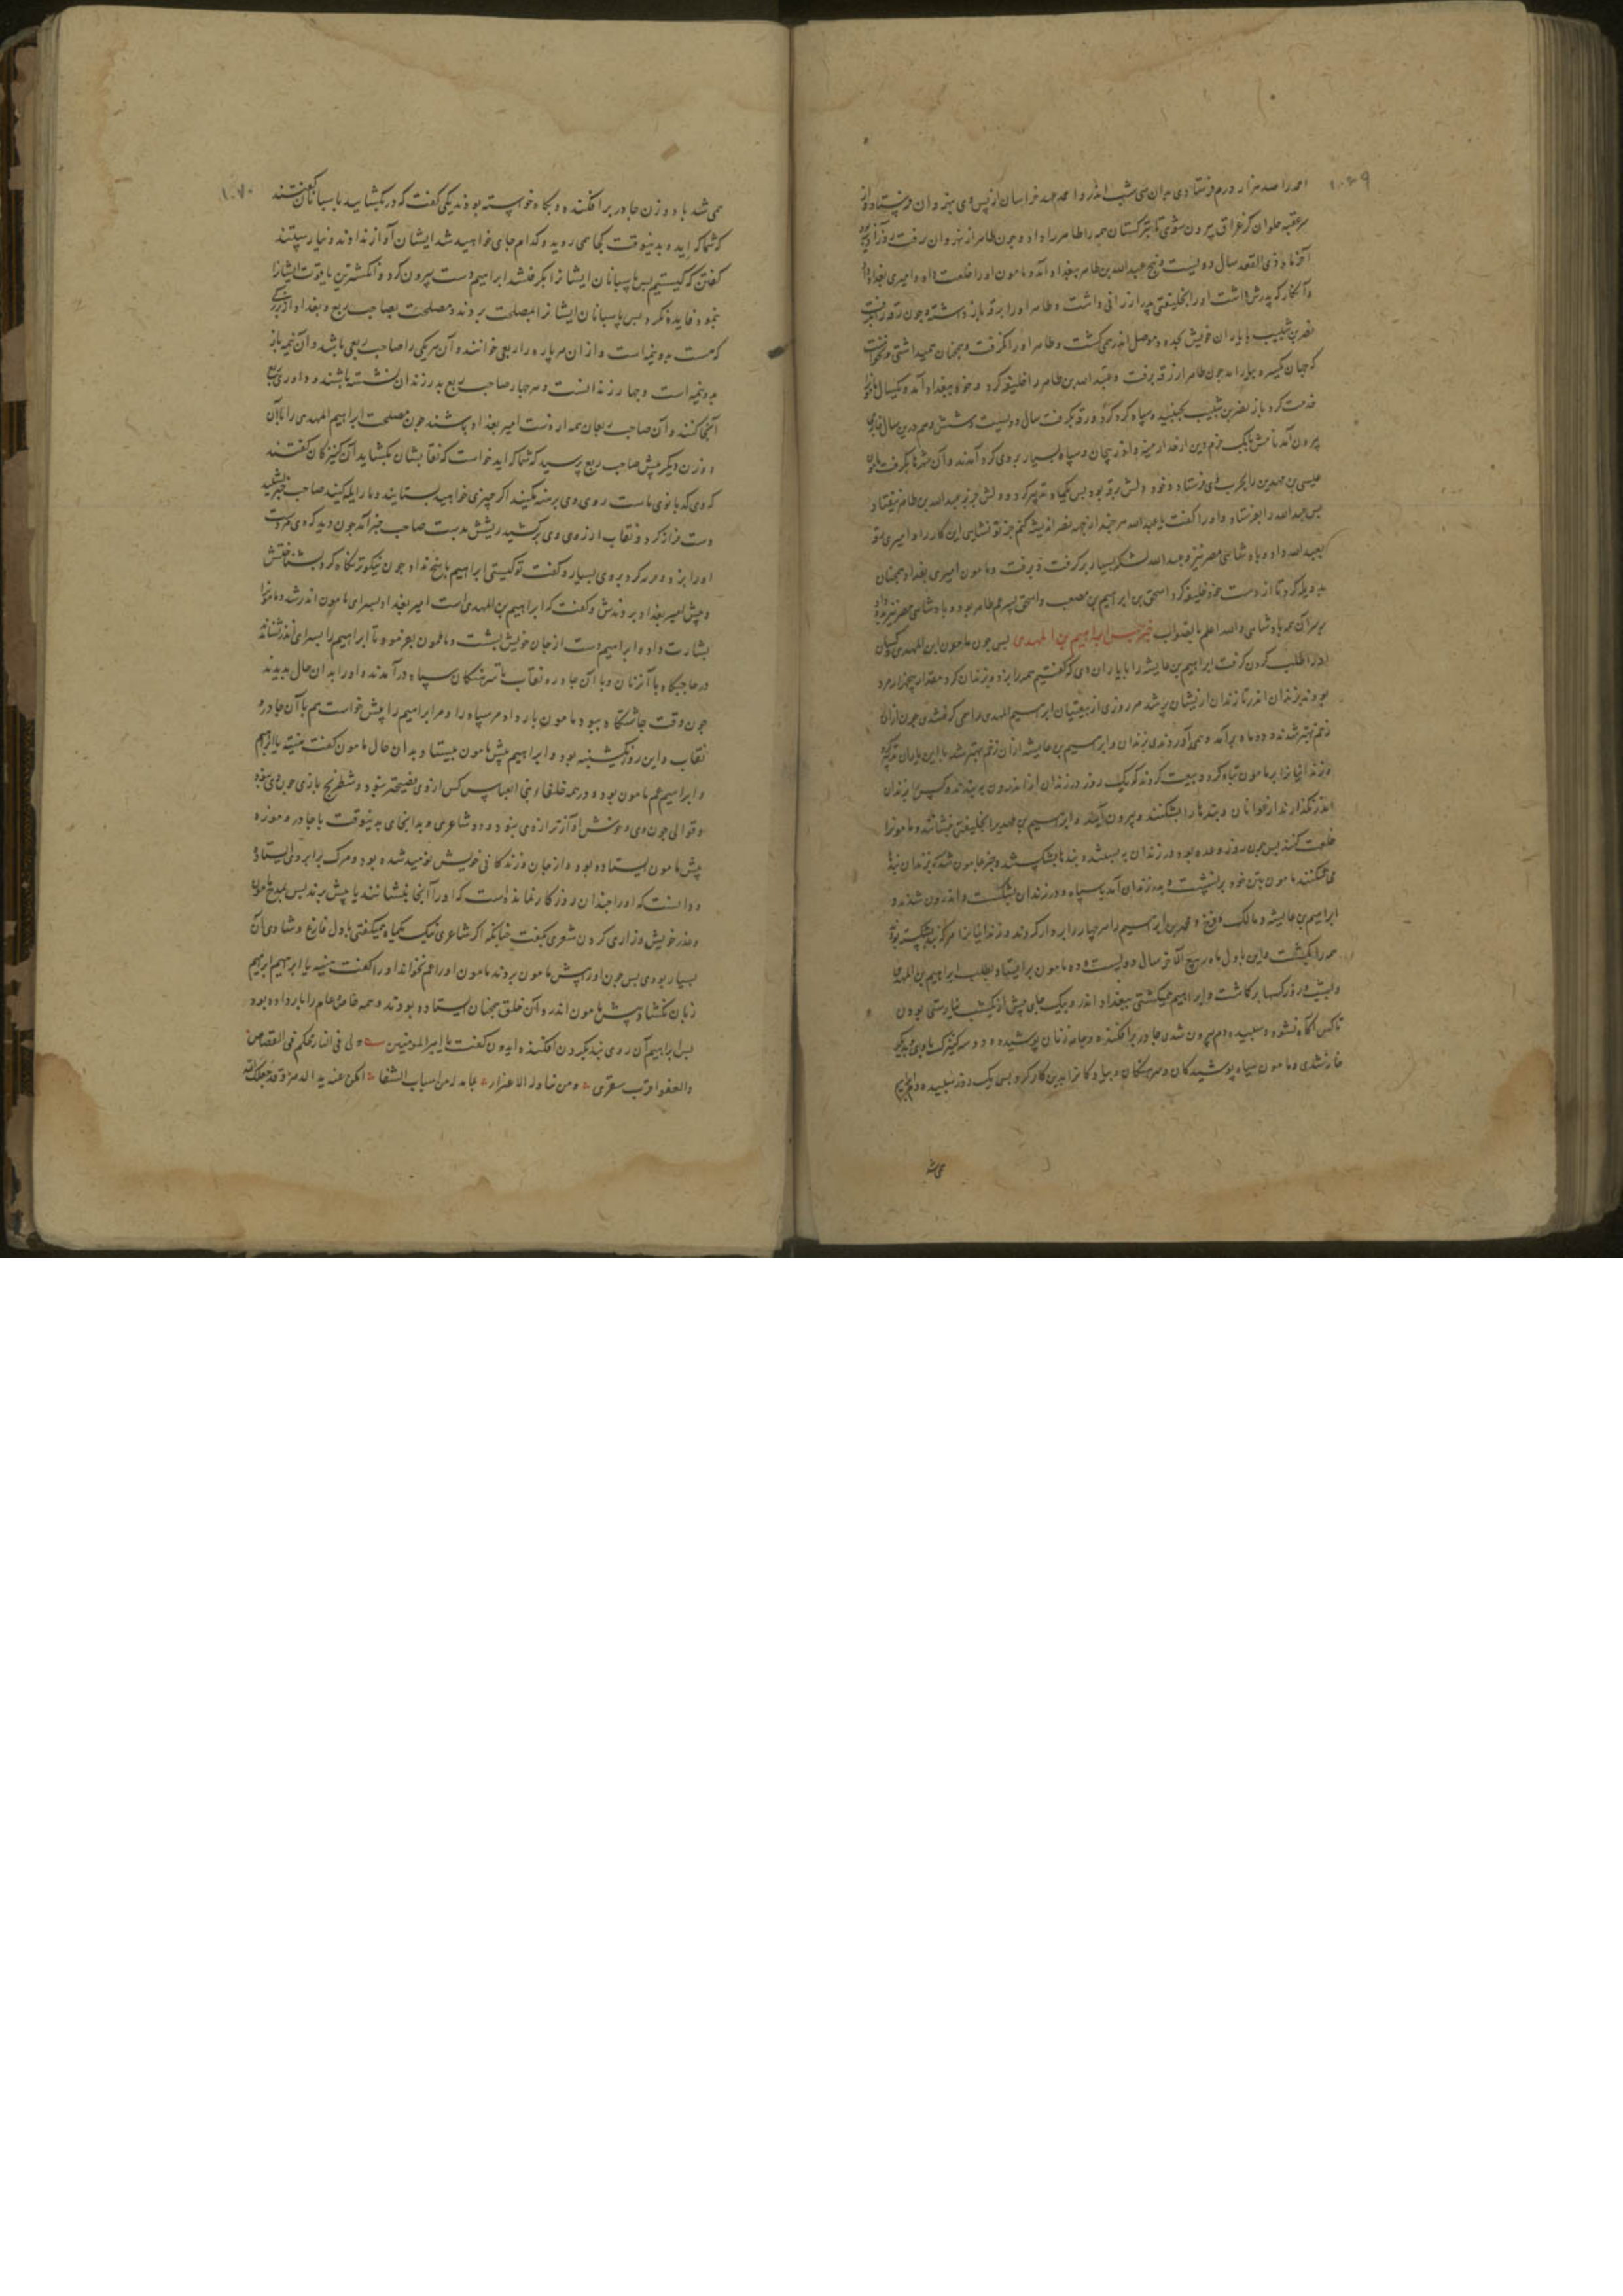 ۱۰۶۹
احمد را صد هزار درم فرستاد وی بدان شب اندر و احمد عهد خراسان از پس وی بنهروان فرستاد و از
سر عقبه حلوان کز عراق بیرون شوی تا بترکستان همه را طاهر را داد و چون طاهر از نهروان رفت
آخر ماه ذی القعده سال دویست و پنج عبدالله بن طاهر ببغداد آمد و مامون او را خلعت داد و امیری بغداد
و آن کار که پدرش داشت او را بخلیفتی پدر ارزانی داشت و طاهر او را برقه باز داشته و چون
نصر بن شبیب با یاران خویش بحد موصل اندر همی گشت و طاهر او را نگرفت و همچنان همیداشتی
که جهان یکسره بیاراید چون طاهر از رقه برفت و عبدالله بن طاهر را خلیفه کرد و خود ببغداد آمد و یکسال
خدمت کرد باز نصر بن شبیب بجنبید و سپاه کرد کرد و رقه بگرفت سال دویست و شش و هم درین سال
بیرون آمد نامش بابک خرم دین از حد ارمینه و آذربیجان و سپاه بسیار بر وی گرد آمدند و آن شهرها بگرفت
عیسی بن محمد بن را بحرب وی فرستاد و خود دلش برقه بود پس یکماه تدبیر کرد و دلش جز بر عبدالله بن طاهر نیفتاد
پس عبدالله را بفرستاد و او را گفت یا عبدالله هر چند از بهر نصر اندیشه کنم جز تو نشایی این کار را و امیری
بعبدالله داد و پادشاهی مصر نیز و عبدالله لشکر بسیار برگرفت و برفت و مامون امیری بغداد همچنان
بدو یله کرد تا از دست خود خلیفه کرد اسحق بن ابراهیم بن مصعب و اسحق پسر عم طاهر بود و پادشاهی مصر نیز
بر سر آن همه پادشاهی والله اعلم بالصواب خبر حبس ابراهیم بن المهدی پس چون مامون ابن المهدی
اندر طلب کردن گرفت ابراهیم بن عایشه را با یاران وی که گفتیم همه را بزد و بزندان کرد مقدار پنجهزار مرد
بودند بزندان اندر تا زندان ازیشان پر شد هر روزی از بیعتیان ابراهیم المهدی را همی گرفتندی چون از آن
زخم بهتر شدند دو ماه برآمد و همی آوردندی بزندان و ابراهیم بن عایشه از آن زخم بهتر شد با این یاران تدبیر
زندانیانرا بر مامون تباه کرد و بیعت کردند که یک روز در زندان از اندرون ببندند و کس را بزندان
اندر نگذارند از عوانان و بندها را بشکنند و بیرون آیند و ابراهیم بن مهدی را بخلیفتی بنشانند و مامونرا
خلعت کنند پس چون روز وعده بود در زندان ببستند و بندها بشکستند و خبر بمامون شد که بزندان بندها
می شکنند مامون بتن خود برنشست و بدر زندان آمد با سپاه و در زندان بشکست و اندرون شدند و
ابراهیم بن عایشه و مالک و فرج و محمد بن ابراهیم را هر چهار را بر دار کردند و زندانیانرا هر که بند شکسته بود
همه را بکشت و این باول ماه ربیع الآخر سال دویست و ده مامون برایستاد بطلب ابراهیم بن المهدی
و بشب و روز کسها برگماشت و ابراهیم همیگشتی ببغداد اندر و بیک جای بیش از یکشب نیارستی بودن
تا کس آگاه نشود و سپیده دم بیرون شدی چادر برافکنده و جامه زنان پوشیده و دو سه کنیزک با وی
خانه شدی و مامون سیاه پوشیدگان و سرهنگان و پیادگانرا بدین کار کرد پس یک روز سپیده دم ابراهیم
می شد
۱۰۷۰
همی شد با دو زن چادر برافکنده و پگاه خواسته بودند یکی گفت که در بگشایید پاسبانان گفتند
که شما که اید و بدینوقت کجا همی روید و کدام جای خواهید شد ایشان آواز ندادند و نیارستند
گفتن که کیستیم پس پاسبانان ایشانرا بگرفتند ابراهیم دست بیرون کرد و انگشترین یاقوت ایشانرا
بنمود فایده نکرد پس پاسبانان ایشانرا بمصلحت بردند و مصلحت بصاحب ربع و بغداد از بزرگی
که هست بدو نیمه است و از آن هر پاره را ربعی خوانند و آن هر یکی را صاحب ربعی باشد و آن نیمه باز
بدو نیمه است و چهار زندانست و هر چهار صاحب ربع بدر زندان نشسته باشند و داوری
آنجا کنند و آن صاحب ربعان همه از دست امیر بغداد باشند چون مصلحت ابراهیم المهدی را با آن
دو زن دیگر پیش صاحب ربع پرسید که شما که اید خواست که نقابشان بگشاید آن کنیزکان گفتند
که وی کدبانوی ماست روی وی برهنه مکنید اگر چیزی خواهید بستانید و ما را یله کنید صاحب
دست فراز کرد و نقاب از روی وی برکشید ریشش بدست صاحب خبر آمد چون دید که وی مردست
او را بزد و مزد کرد بر وی بسیار و گفت تو کیستی ابراهیم پاسخ نداد چون نیکوتر نگاه کرد بشناختش
و پیش امیر بغداد بردندش و گفت که ابراهیم بن المهدی است امیر بغداد بسرای مامون اندر شد و مامونرا
بشارت داد و ابراهیم دست از جان خویش بشست و مامون بفرمود تا ابراهیم را بسرای اندر نشاند
در حاجبگاه با آن زنان و با آن چادر و نقاب تا سرهنگان سپاه درآمدند و او را بدان حال بدیدند
چون وقت چاشتگاه ببود مامون بار داد مر سپاه را و مر ابراهیم را پیش خواست هم با آن چادر و
نقاب و این روز یکشنبه بود و ابراهیم پیش مامون بیستاد بدان حال مامون گفت هنیئه یا ابراهیم
و ابراهیم عم مامون بود و در همه خلفاء بنی العباس کس از وی فصیحتر نبود و شطرنج بازی چون وی نبود
و قوالی چون وی و خوش آوازتر از وی نبود و شاعری و بدانجای بدینوقت با چادر و موزه
پیش مامون ایستاده بود و از جان و زندگانی خویش نومید شده بود و مرگ برابر وی ایستاده
و دانست که او را چندان روزگار نماندست که او را آنجا بنشانند یا پیش برند پس بمدح مامون
و عذر خویش و زاری کردن شعری بگفت چنانکه اگر شاعری نیک بیکماه همیگفتی با دل فارغ و شادی آن
بسیار بودی پس چون او را پیش مامون بردند مامون او را عم نخواند او را گفت هنیه یا ابراهیم ابراهیم
زبان بگشاد پیش مامون اندر و آن خلق همچنان ایستاده بودند و همه خاص و عام را بار داده بود
پس ابراهیم آن روی بند بگردن افکنده ایدون گفت یا امیر المومنین ولی فی الثار تحکم فی القصاص
والعفو اقرب للتقوی ومن تناوله الاعتزار بما مد له من اسباب الشقا امکن عنه ید الدهر وقد جعلک الله